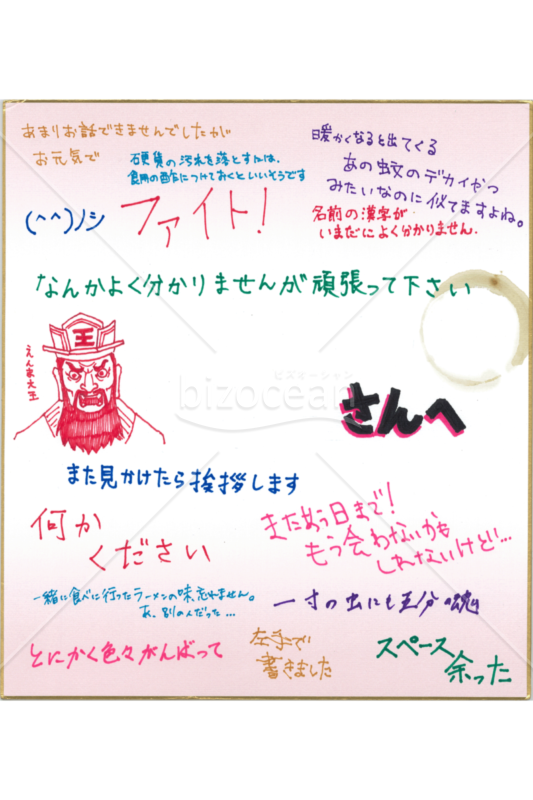 あまりお話できませんでしたが
お元気で
硬貨の汚れを落とすには、
食用の酢につけておくといいそうです
暖かくなると出てくる
あの蚊のデカイやつ
みたいなのに似てますよね。
(^^)ノシ
ファイト!
名前の漢字が
いまだによく分かりません.
なんかよく分かりませんが頑張って下さい
王
えんま大王
ビズオーシャン
bizocean
さんへ
また見かけたら挨拶します
何か
ください
また会う日まで!
もう会わないかも
しれないけど…
一緒に食べに行ったラーメンの味忘れません。
あ、別の人だった…
一寸の虫にも五分の魂
とにかく色々がんばって
左手で
書きました
スペース
余った